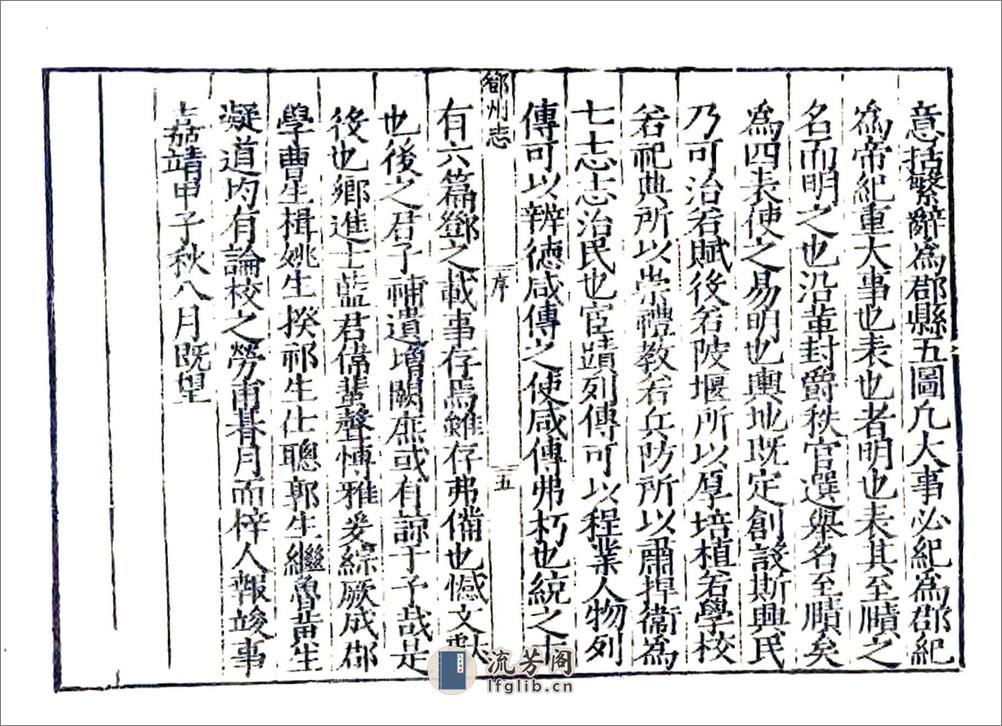 意括繫辭為郡縣五圖凡大事必紀為郡紀
為帝紀重大事也表也者明也表其至賾之
名而明之也沿革封爵秩官選舉名至賾矣
為四表使之易明也輿地既定創設斯興民
乃可治若賦後若陂堰所以厚培植若學校
若祀典所以崇禮教若兵防所以肅捍衛為
七志志治民也宦蹟列傳可以程業人物列
傳可以辨德咸傳之使咸傳弗朽也統之十
鄧州志
序
五
有六篇鄧之載事存焉雖存弗備也憾文獻
也後之君子補遺增闕庶或有諒于予哉是
後也鄉進士藍君偉蜚聲愽雅爰綜厥成郡
學曹生楫姚生揆祁生仕聰郭生繼魯苗生
凝道均有論校之勞甫朞月而梓人報竣事
嘉靖甲子秋八月既望
流芳阁
lfglib.cn